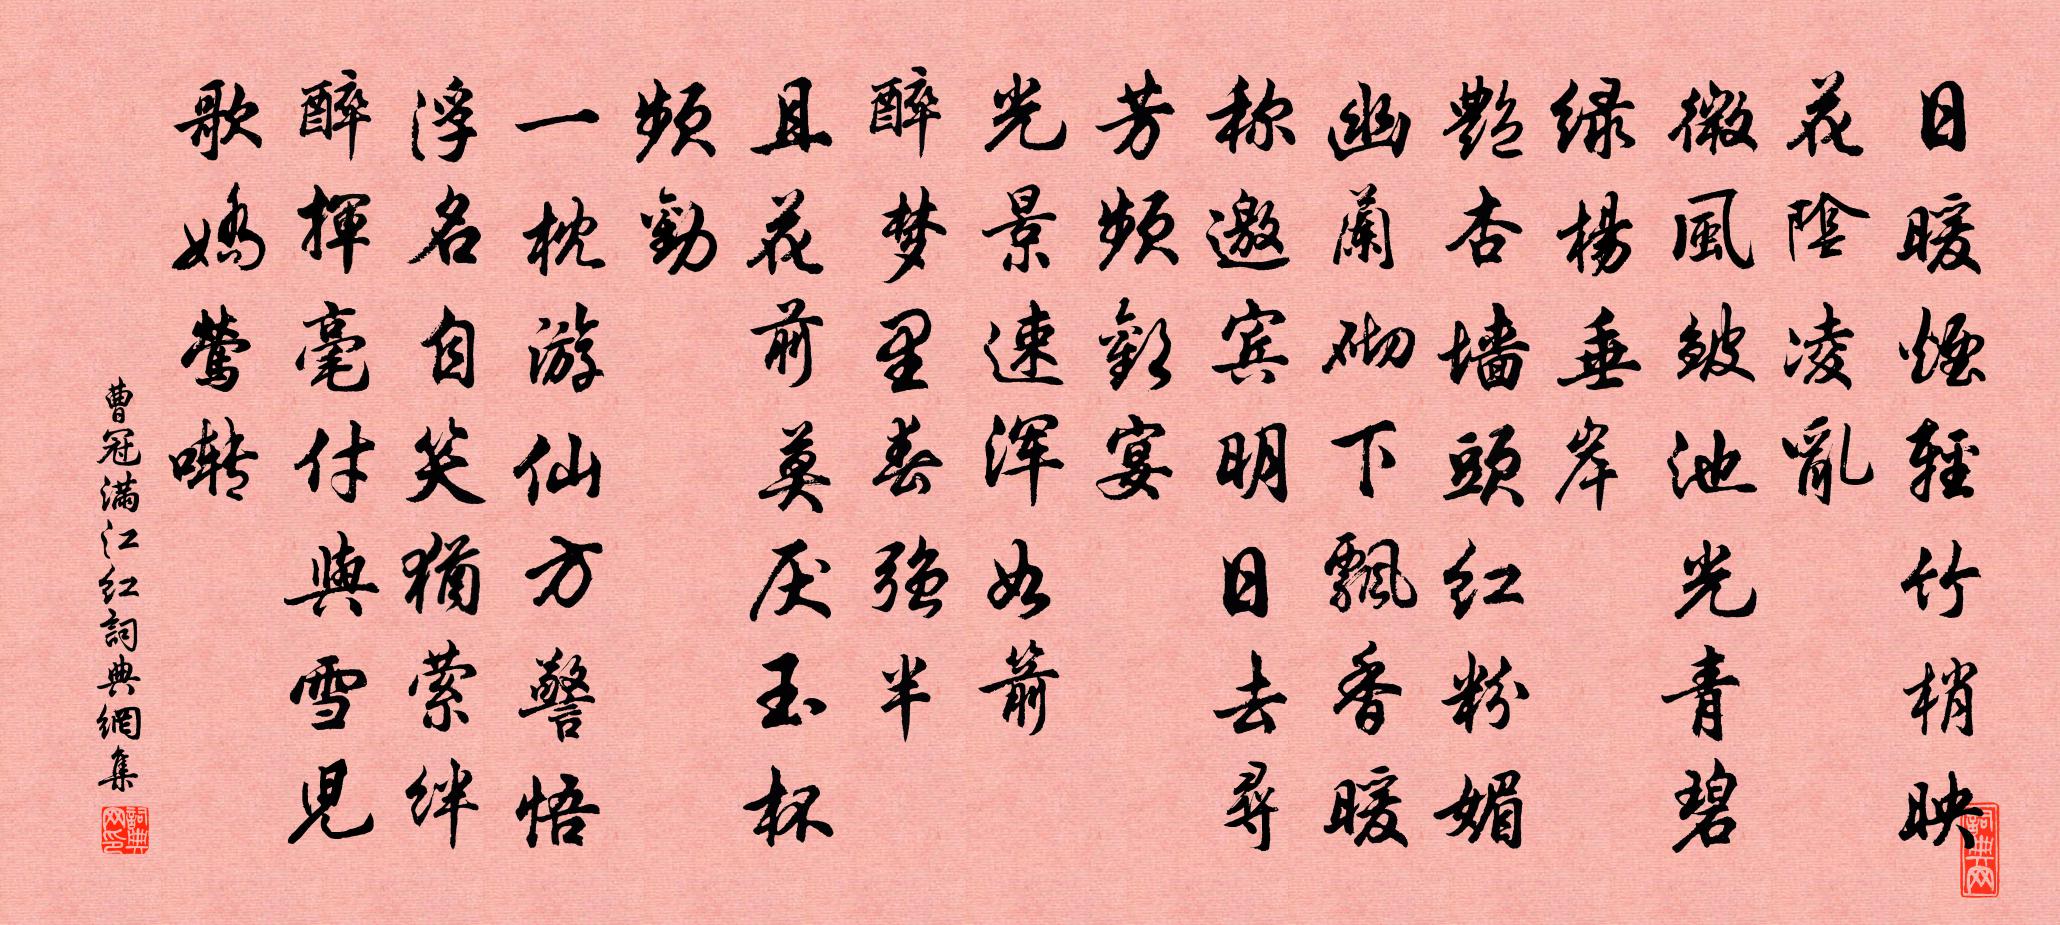 日暖烟轻竹梢映
花阴凌亂
微風皱池光青碧
绿楊垂岸
艷杏墙頭红粉媚
幽蘭砌下飄香暖
称邀宾明日去尋
芳頻歡宴
光景速浑如箭
醉梦里春强半
且花前莫厌玉杯
頻勸
一枕游仙方警悟
浮名自笑猶萦绊
醉揮毫付與雪児
歌嬌鶯囀
曹冠滿江红詞典網集
詞典网印
詞典网